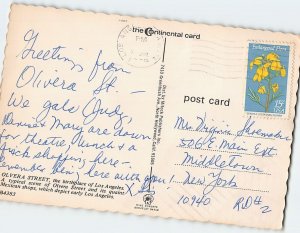 the Continental card
LOS ANGELES
PM
Endangered Flora
15¢
post card
Greetings from
Olivera St —
We gals Judy,
Mary are down
for theatre, lunch &
shopping here —
Remember being here with you!
Mrs. Virginia Shoemaker
506 E Main Ext.
Middletown
New York
10940 RD#2
OLVERA STREET, the birthplace of Los Angeles.
A typical scene of Olvera Street and its quaint
Mexican shops, which depict early Los Angeles.